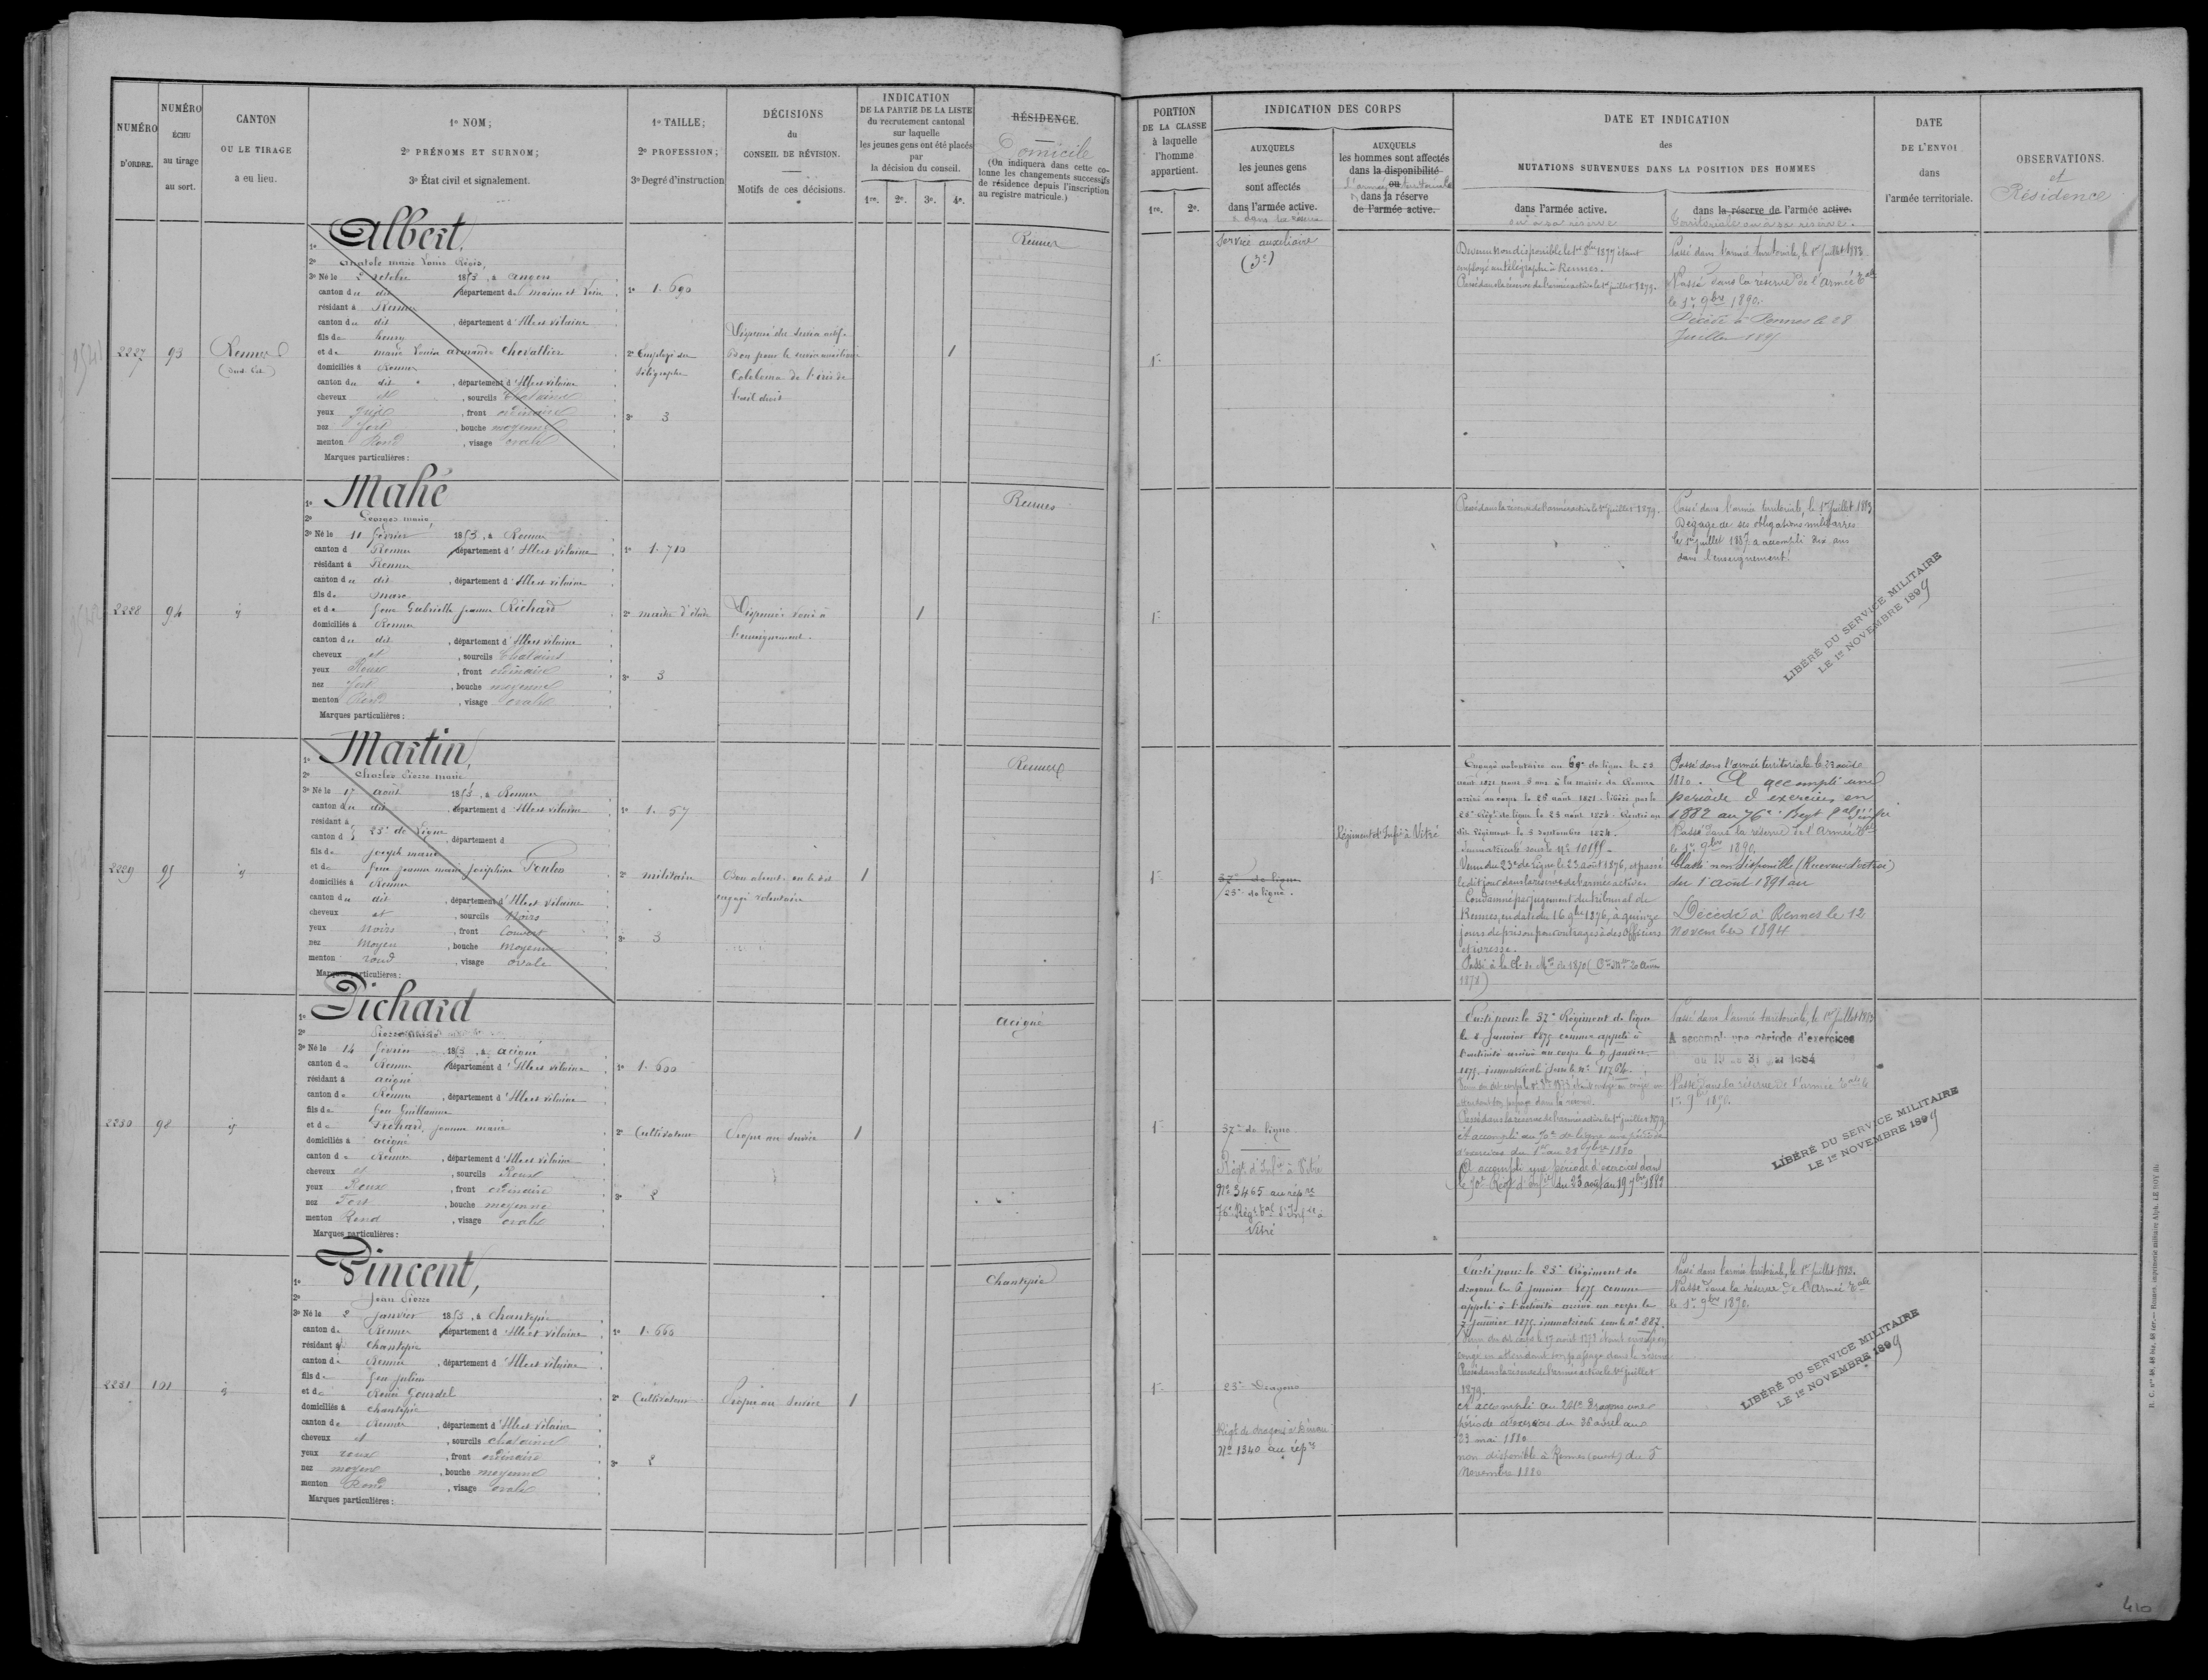 NUMÉRO
D'ORDRE.
NUMÉRO
ÉCHU
au tirage
au sort.
CANTON
OU LE TIRAGE
a eu lieu.
1º NOM;
2º PRÉNOMS ET SURNOM;
3º État civil et signalement.
1º TAILLE;
2º PROFESSION;
3º Degré d'instruction
DÉCISIONS
du
CONSEIL DE RÉVISION.
Motifs de ces décisions.
INDICATION
DE LA PARTIE DE LA LISTE
du recrutement cantonal
sur laquelle
les jeunes gens ont été placés
par
la décision du conseil.
1re. 2e. 3e. 4e.
RÉSIDENCE.
Domicile
(On indiquera dans cette co-
lonne les changements successifs
de résidence depuis l'inscription
au registre matricule.)
PORTION
DE LA CLASSE
à laquelle
l'homme
appartient.
1re. 2e.
INDICATION DES CORPS
AUXQUELS
les jeunes gens
sont affectés
dans l'armée active.
et dans sa réserve
AUXQUELS
les hommes sont affectés
dans la disponibilité
ou
l'armée territoriale
dans la réserve
de l'armée active.
DATE ET INDICATION
des
MUTATIONS SURVENUES DANS LA POSITION DES HOMMES
dans l'armée active.
ou à sa réserve
dans la réserve de l'armée active.
territoriale ou à sa réserve.
DATE
DE L'ENVOI
dans
l'armée territoriale.
OBSERVATIONS.
et
Résidence
2227
93
Rennes
(Sud-Est)
1º Albert,
2º Anatole marie Louis Régis,
3º Né le 2 octobre 1853, à angers
canton du dit département de maine et Loire
résidant à Rennes
canton du dit, département d'Ille et vilaine
fils de henry
et de marie Louise armande Chevallier
domiciliés à Rennes
canton du dit, département d'Ille et vilaine
cheveux et, sourcils Chatains
yeux gris, front ordinaire
nez fort, bouche moyenne
menton Rond, visage ovale
Marques particulières:
1º 1.690
2º Employé du
télégraphe
3º 3
Dispensé du service actif.
Bon pour le service auxiliaire
Coloboma de l'iris de
l'œil droit
1
Rennes
1re
Service auxiliaire
(3e)
Devenu non disponible le 1er 8bre 1877 étant
employé au télégraphe à Rennes.
Passé dans la réserve de l'armée active le 1er juillet 1879.
Passé dans l'armée territoriale, le 1er Juillet 1883
Passé dans la réserve de l'armée tale
le 1er 9bre 1890.
Décédé à Rennes le 28
Juillet 1895
2228
94
id
1º Mahé
2º Georges marie,
3º Né le 11 février 1853, à Rennes
canton d Rennes département d'Ille et Vilaine
résidant à Rennes
canton du dit, département d'Ille et vilaine
fils de marc
et de feue Gabrielle Jeanne Richard
domiciliés à Rennes
canton du dit, département d'Ille et vilaine
cheveux et, sourcils Chatains
yeux Roux, front ordinaire
nez fort, bouche moyenne
menton Rond, visage ovale
Marques particulières:
1º 1.710
2º maître d'étude
3º 3
Dispensé voué à
l'enseignement.
1
Rennes
1re
Passé dans la réserve de l'armée active le 1er juillet 1879.
Passé dans l'armée territoriale, le 1er juillet 1883
Dégagé de ses obligations militaires
le 1er juillet 1887 a accompli dix ans
dans l'enseignement
LIBÉRÉ DU SERVICE MILITAIRE
LE 1er NOVEMBRE 1899
2229
95
id
1º Martin,
2º Charles Pierre marie
3º Né le 17 août 1853, à Rennes
canton du dit département d'Ille et Vilaine
résidant à 25e de Ligne
canton d, département d
fils de joseph marie
et de feue jeanne marie joséphine Toulon
domiciliés à Rennes
canton du dit, département d'Ille et Vilaine
cheveux et, sourcils Noirs
yeux Noirs, front Couvert
nez Moyen, bouche Moyenne
menton rond, visage ovale.
Marques particulières:
1º 1.57
2º militaire
3º 3
Bon absent. on le dit
engagé volontaire
1
Rennes
1re
37e de ligne
25e de ligne.
Régiment d'Infie à Vitré
Engagé volontaire au 69e de ligne le 23
août 1871 pour 5 ans à la mairie de Rennes
arrivé au corps le 26 août 1871. libéré par le
25e Régt de ligne le 23 août 1874. Rentré au
dit Régiment le 5 septembre 1874.
Immatriculé sous le nº 10155.
Venu du 25e de Ligne le 23 août 1876, et passé
le dit jour dans la réserve de l'armée active.
Condamné par jugement du tribunal de
Rennes, en date du 16 9bre 1876, à quinze
jours de prison pour outrages à des officiers
et ivresse.
Passé à la Cl. de Mon de 1870
1878)
Passé dans l'armée territoriale le 23 août
1880. A accompli une
période d'exercices en
1882 au 76e Régt tal d'infie
Passé dans la réserve de l'armée tale
le 1er 9bre 1890.
Classé non disponible (Receveur d'octroi)
du 1er août 1891 au
Décédé à Rennes le 12
novembre 1894
2230
98
id
1º Pichard
2º Pierre Marie
3º Né le 14 février 1853, à acigné
canton de Rennes département d'Ille et Vilaine
résidant à acigné
canton de Rennes, département d'Ille et Vilaine
fils de feu Guillaume
et de Pichard, jeanne marie
domiciliés à acigné
canton de Rennes, département d'Ille et vilaine
cheveux et, sourcils Roux
yeux Roux, front ordinaire
nez Fort, bouche moyenne
menton Rond, visage ovale
Marques particulières:
1º 1.600
2º Cultivateur
3º 2
Propre au service
1
acigné
1re
37e de ligne
Régt d'Infie à Vitré
Nº 3465 au répre
76e Régt tal d'Infie à
Vitré
Parti pour le 37e Régiment de ligne
le 8 Janvier 1875 comme appelé à
l'activité arrivé au corps le 9 janvier
1875. immatriculé sous le nº 11764.
Passé dans la réserve de l'armée active le 1er juillet 1879.
A accompli au 70e de ligne une période
d'exercices du 1er au 28 7bre 1880
A accompli une période d'exercices dans
le 70e Régt d'Infie du 23 août au 19 7bre 1882
Passé dans l'armée territoriale, le 1er Juillet 1883
A accompli une période d'exercices
du 19 au 31 1884
Passé dans la réserve de l'armée tale le
1er 9bre 1890.
LIBÉRÉ DU SERVICE MILITAIRE
LE 1er NOVEMBRE 1899
2231
101
id
1º Vincent,
2º Jean Pierre
3º Né le 2 janvier 1853, à Chantepie
canton de Rennes département d'Ille et Vilaine
résidant à Chantepie
canton de Rennes, département d'Ille et vilaine
fils de feu julien
et de Renée Gourdel
domiciliés à chantepie
canton de Rennes, département d'Ille et Vilaine
cheveux et, sourcils chatains
yeux roux, front ordinaire
nez moyen, bouche moyenne
menton Rond, visage ovale
Marques particulières:
1º 1.660
2º Cultivateur
3º 2
Propre au service
1
Chantepie
1re
25e Dragons
Régt de dragons à Dinan
Nº 1340 au répre
Parti pour le 25e Régiment de
dragons le 6 janvier 1875 comme
appelé à l'activité arrivé au corps le
7 janvier 1875 immatriculé sous le nº 887.
Venu du dit corps le 17 août 1878 étant envoyé en
congé en attendant son passage dans la réserve
Passé dans la réserve de l'armée active le 1er juillet
1879.
A accompli au 24e Dragons une
période d'exercices du 26 avril au
23 mai 1880
non disponible à Rennes (ouest) du 5
Novembre 1880
Passé dans l'armée territoriale, le 1er Juillet 1883.
Passé dans la réserve de l'armée tale
le 1er 9bre 1890.
LIBÉRÉ DU SERVICE MILITAIRE
LE 1er NOVEMBRE 1899
R. C. nos 48, 48 bis, 48 ter.— Rennes, imprimerie militaire Alph. LE ROY fils.
410